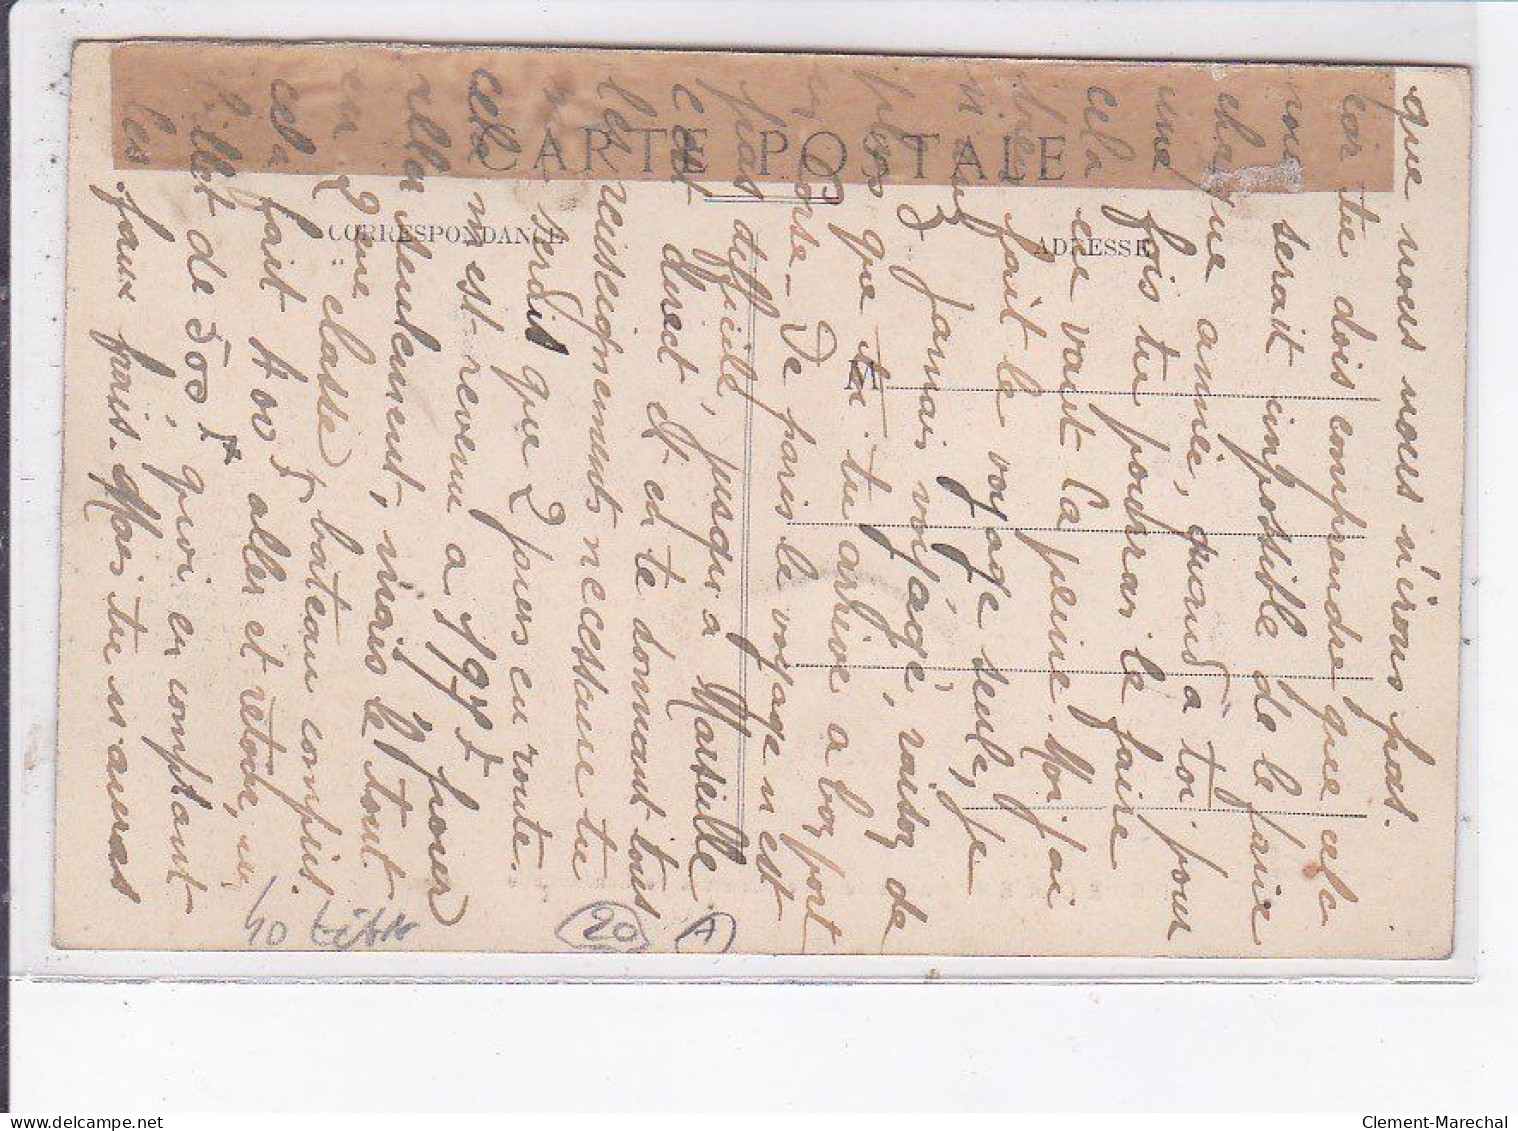 CARTE POSTALE
CORRESPONDANCE
ADRESSE
M
que nous nous n'irons pas.
car tu dois comprendre que cela
nous serait impossible de le faire
chaque année, quand a toi pour
une fois tu pourrais le faire
cela en vaut la peine. Moi j'ai
fait le voyage seule, je
n'ai jamais voyagé, raison de
plus que tu arrive a bon port
en Corse - De paris le voyage n'est
pas difficile, jusqu'a Marseille
c'est direct et en te donnant tous
les renseignements necessaire tu
serait que 2 jours en route.
cela m'est revenu a 197f pour
aller seulement, mais le tout
en 2me classe, bateau compris.
cela fait 400f aller et retour, un
billet de 500f, quoi en comptant
les faux frais. Mais tu n'auras
40 tétes
20
A
Clement-Marechal